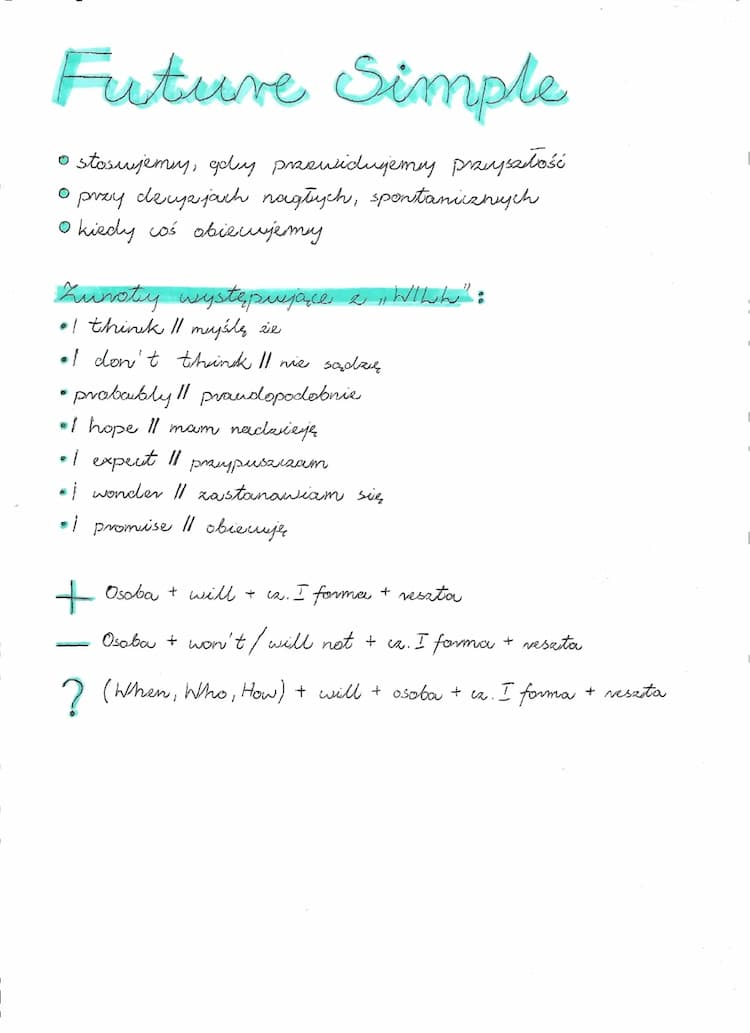 Future Simple
stosujemy, gdy przewidujemy przyszłość
przy decyzjach nagłych, spontanicznych
kiedy coś obiecujemy
Zwroty występujące z „WILL”:
I think // myślę że
I don't think // nie sądzę
probably // prawdopodobnie
I hope // mam nadzieję
I expect // przypuszczam
i wonder // zastanawiam się
I promise // obiecuję
+ Osoba + will + cz. I forma + reszta
— Osoba + won't / will not + cz. I forma + reszta
? (When, Who, How) + will + osoba + cz. I forma + reszta